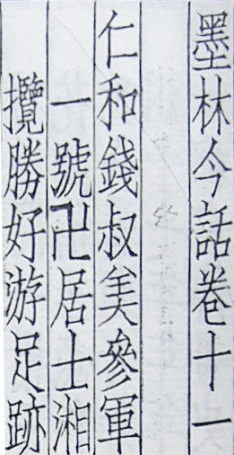 墨林今話卷十一
仁和錢叔美參軍
一號卍居士湘
攬勝好游足跡